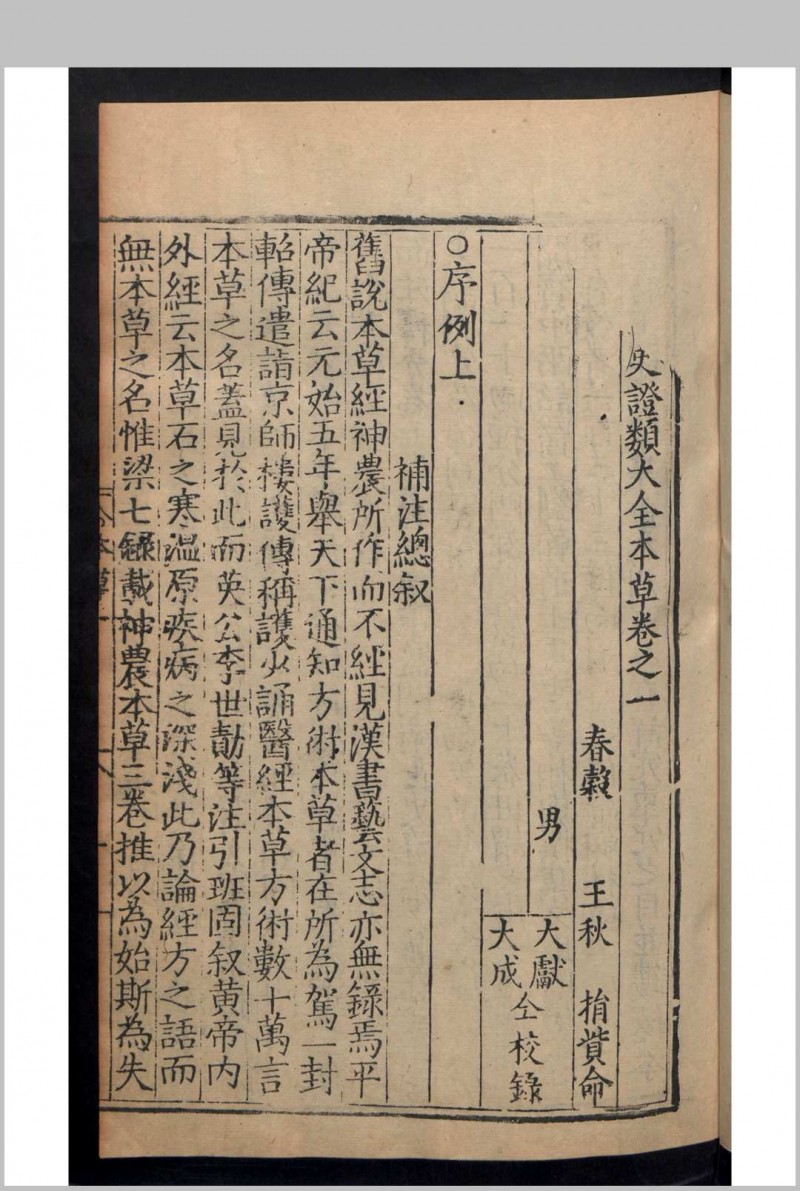 史證類大全本草卷之一
春穀 王秋 捐貲命
男 大獻
大成
仝校錄
○序例上
補注總叙
舊說本草經神農所作而不經見漢書藝文志亦無錄焉平
帝紀云元始五年舉天下通知方術本草者在所為駕一封
軺傳遣詣京師樓護傳稱護少誦醫經本草方術數十萬言
本草之名蓋見於此而英公李世勣等注引班固叙黄帝内
外經云本草石之寒溫原疾病之深淺此乃論經方之語而
無本草之名惟梁七錄載神農本草三卷推以為始斯為失